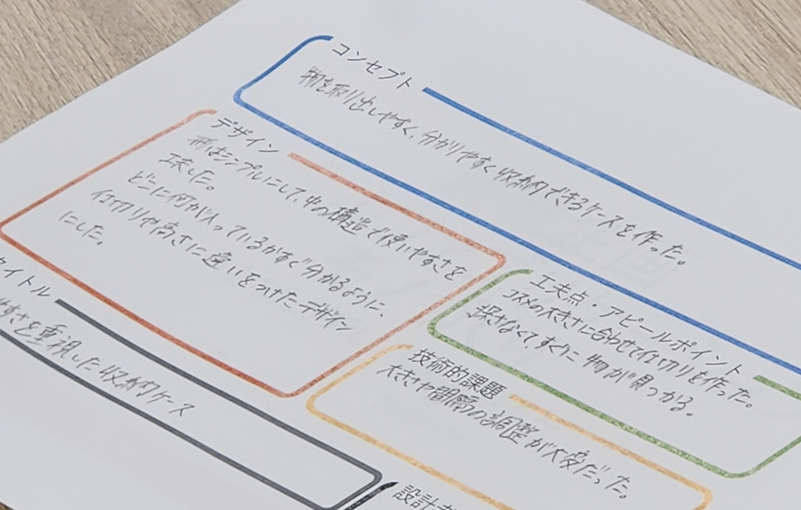 コンセプト
物を取り出しやすく、分かりやすく収納できるケースを作った。
デザイン
形はシンプルにして、中の構造で使いやすさを
工夫した。
どこに何が入っているかすぐ分かるように、
仕切りや高さに違いをつけたデザイン
にした。
工夫点・アピールポイント
コスメの大きさに合わせて仕切りを作った。
探さなくてすぐに物が見つかる。
タイトル
すさを重視した収納ケース
技術的課題
大きさや間隔の調整が大変だった。
設計